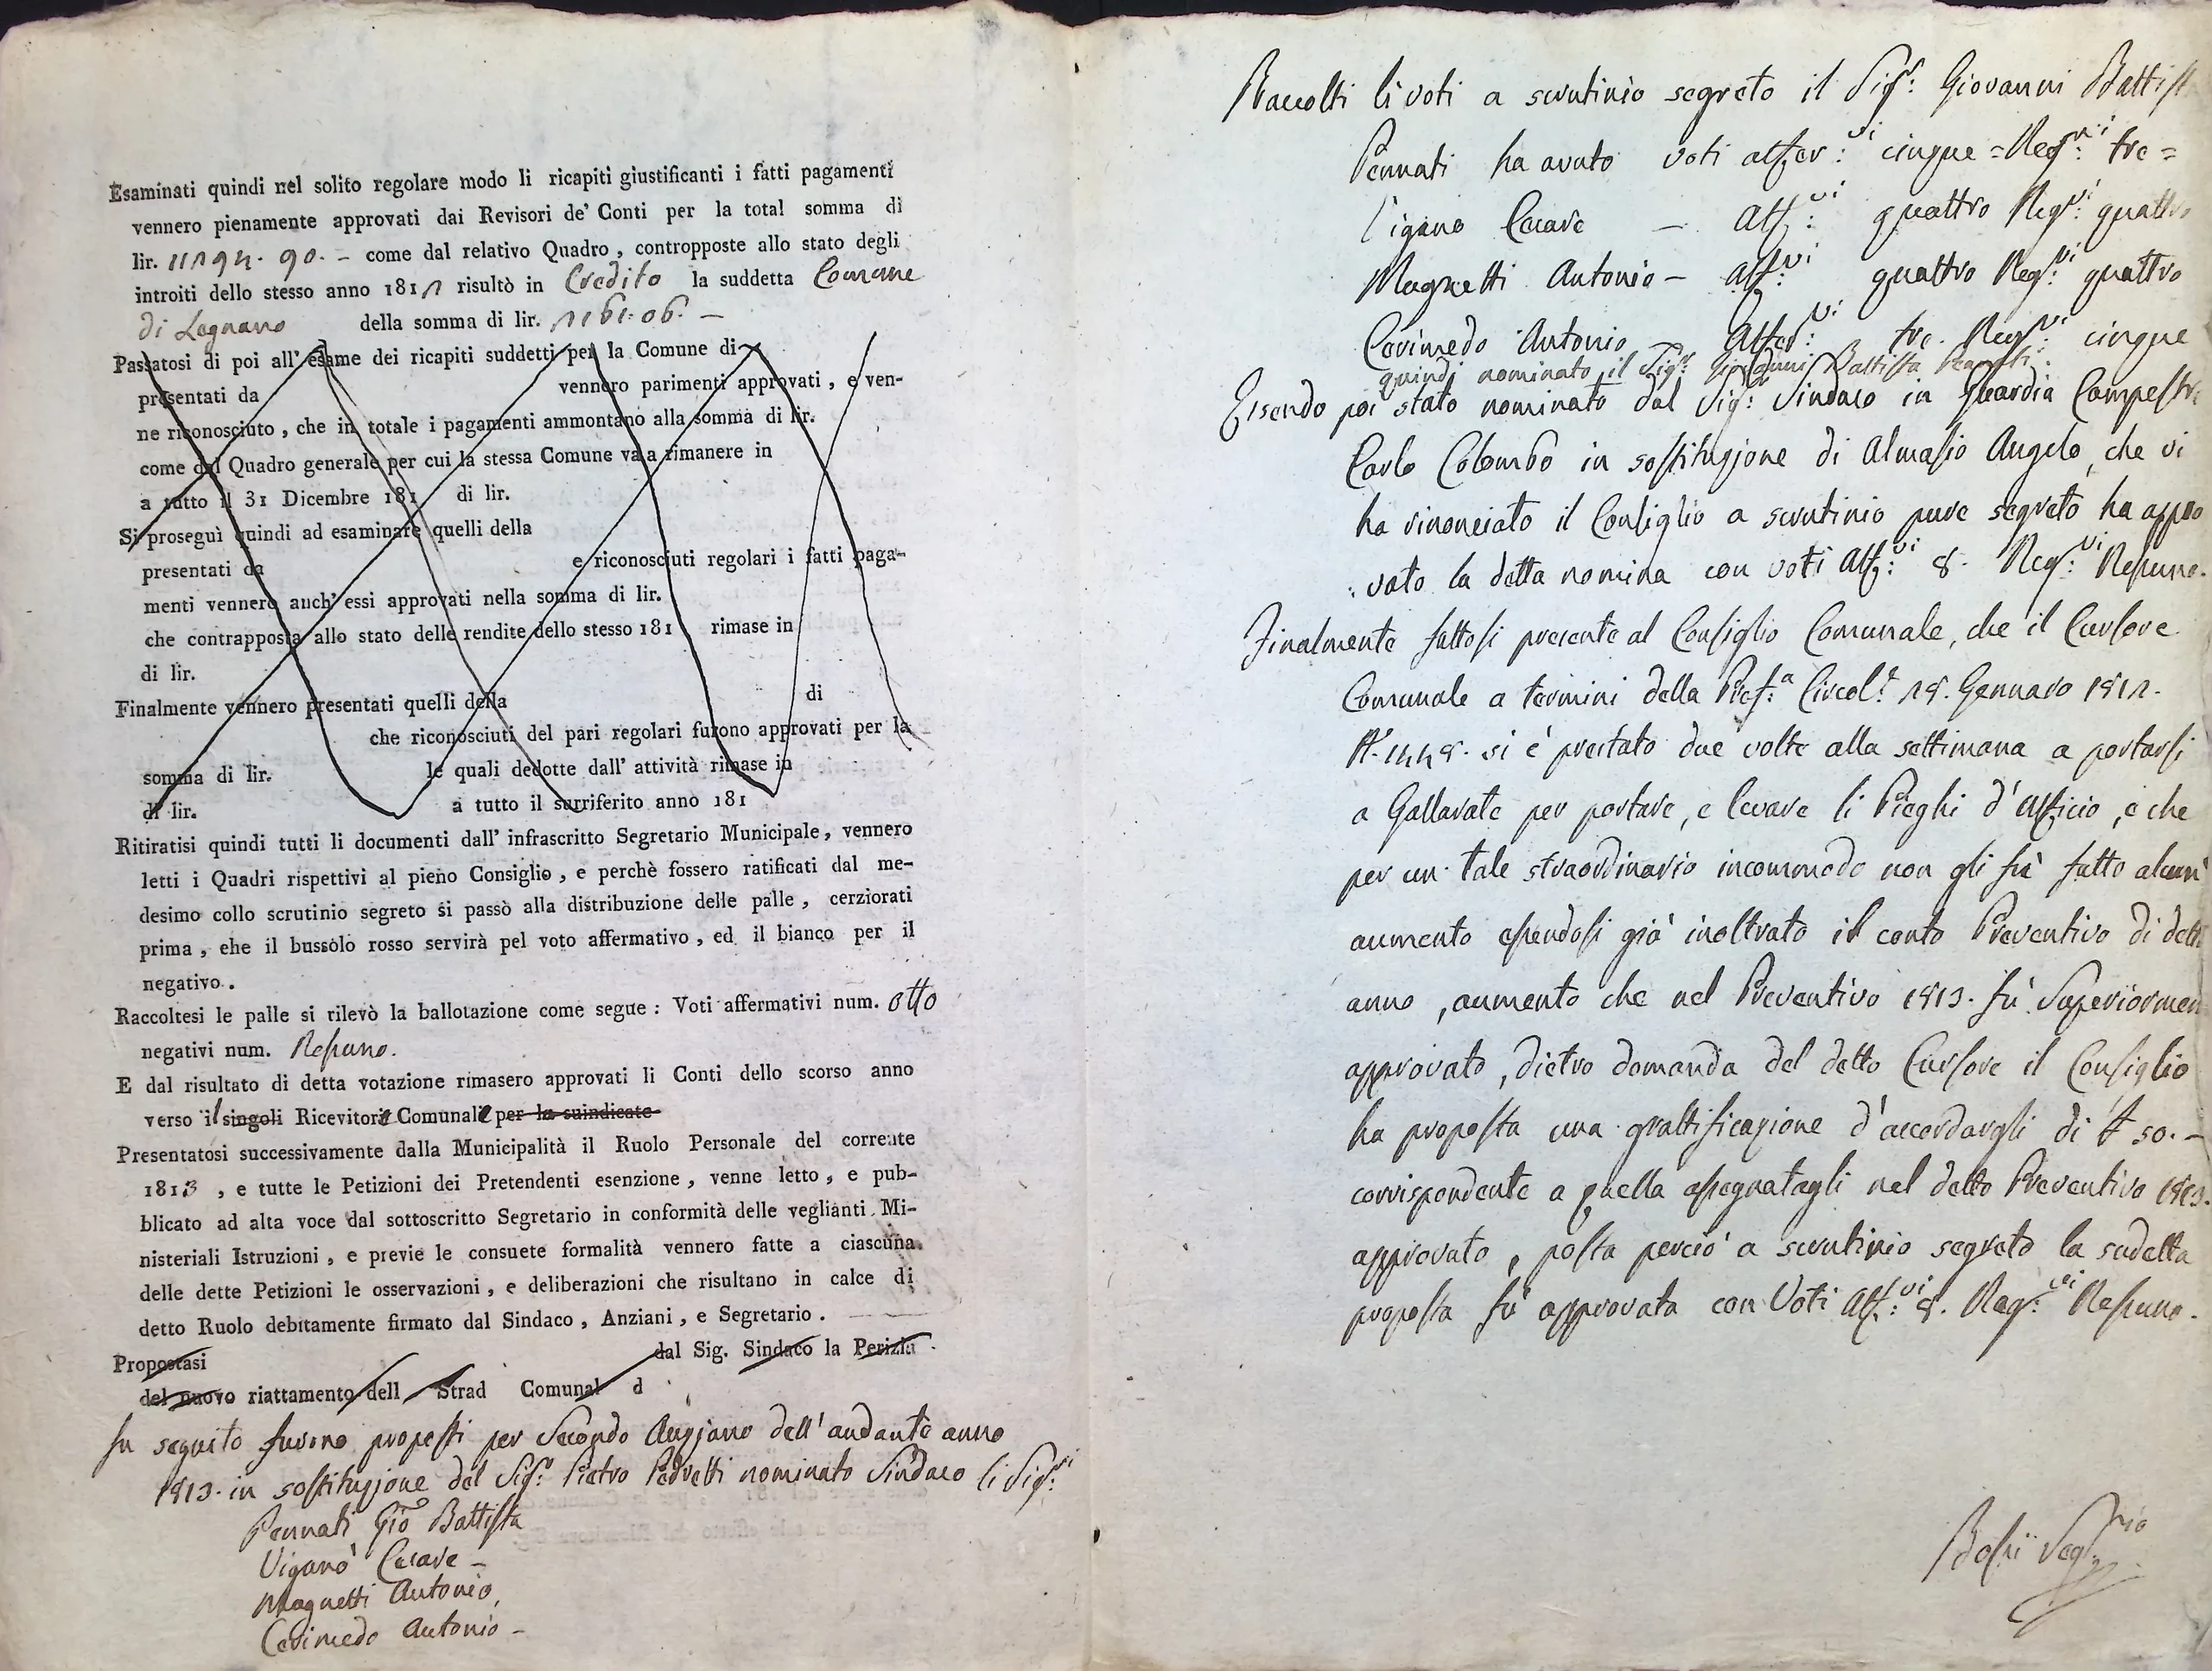 Esaminati quindi nel solito regolare modo li ricapiti giustificanti i fatti pagamenti
vennero pienamente approvati dai Revisori de' Conti per la total somma di
lir. come dal relativo Quadro , contropposte allo stato degli
introiti dello stesso anno 181 risultò in Credito la suddetta Comune
di Legnano della somma di lir.
Passatosi di poi all' esame dei ricapiti suddetti per la Comune di
presentati da vennero parimenti approvati , e ven-
ne riconosciuto , che in totale i pagamenti ammontano alla somma di lir.
come dal Quadro generale per cui la stessa Comune va a rimanere in
a tutto il 31 Dicembre 181 di lir.
Si proseguì quindi ad esaminare quelli della
presentati da e riconosciuti regolari i fatti paga-
menti vennero auch' essi approvati nella somma di lir.
che contrapposta allo stato delle rendite dello stesso 181 rimase in
di lir.
Finalmente vennero presentati quelli della di
che riconosciuti del pari regolari furono approvati per la
somma di lir. le quali dedotte dall' attività rimase in
di lir. a tutto il surriferito anno 181
Ritiratisi quindi tutti li documenti dall' infrascritto Segretario Municipale , vennero
letti i Quadri rispettivi al pieno Consiglio , e perchè fossero ratificati dal me-
desimo collo scrutinio segreto si passò alla distribuzione delle palle , cerziorati
prima , ehe il bussolo rosso servirà pel voto affermativo , ed il bianco per il
negativo .
Raccoltesi le palle si rilevò la ballotazione come segue : Voti affermativi num. otto
negativi num. Nessuno.
E dal risultato di detta votazione rimasero approvati li Conti dello scorso anno
verso il singoli Ricevitore Comunale per la suindicate
Presentatosi successivamente dalla Municipalità il Ruolo Personale del corrente
1813 , e tutte le Petizioni dei Pretendenti esenzione , venne letto , e pub-
blicato ad alta voce dal sottoscritto Segretario in conformità delle veglianti Mi-
nisteriali Istruzioni , e previe le consuete formalità vennero fatte a ciascuna
delle dette Petizioni le osservazioni , e deliberazioni che risultano in calce di
detto Ruolo debitamente firmato dal Sindaco , Anziani , e Segretario .
Propostasi dal Sig. Sindaco la Perizia
del nuovo riattamento dell Strad Comunal d
In seguito furono proposti per Secondo Anziano dell' andante anno
1813. in sostituzione del Sig.r Pietro nominato Sindaco li Sig.ri
Pennati Gio Battista
Viganò Cesare -
Magnetti Antonio,
Cerimedo Antonio -
Raccolti li voti a scrutinio segreto il Sig.r: Giovanni Battista
Pennati ha avuto voti affer:vi cinque = Neg:vi tre =
Vigano Cesare - Aff:vi quattro Neg:vi quattro
Magnetti Antonio - Aff:vi quattro Neg:vi quattro
Cerimedo Antonio - Affer:vi tre. Neg:vi cinque
quindi nominato il Sig.r Giovanni Battista Pennati.
Essendo poi stato nominato dal Sig: Sindaco in Guardia Campestre
Carlo Colombo in sostituzione di Almasio Angelo, che vi
ha rinonciato il Consiglio a scrutinio pure segreto ha appro
: vato la detta nomina con voti Aff:vi 8. Neg:vi Nessuno.
Finalmente fattosi presente al Consiglio Comunale, che il Cursore
Comunale a termini della Pref.a Circol.e Gennaro
si è prestato due volte alla settimana a portarsi
a Gallarate per portare, e levare li Pieghi d'Officio, e che
per un tale straordinario incommodo non gli fù fatto alcun'
aumento essendosi già inoltrato il conto Preventivo di detto
anno, aumento che nel Preventivo 1813. fù Superiormen
approvato, dietro domanda del detto Cursore il Consiglio
ha proposta una grattificazione d'accordargli di £ 50. -
corrispondente a quella assegnatagli nel detto Preventivo 1813.
approvato, posta perciò a scrutinio segreto la sudetta
proposta fù approvata con Voti Aff:vi 8. Neg:vi Nessuno.